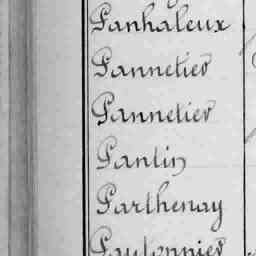 Panhaleux
Pannetier
Pannetier
Pantin
Parthenay
Pautonnier